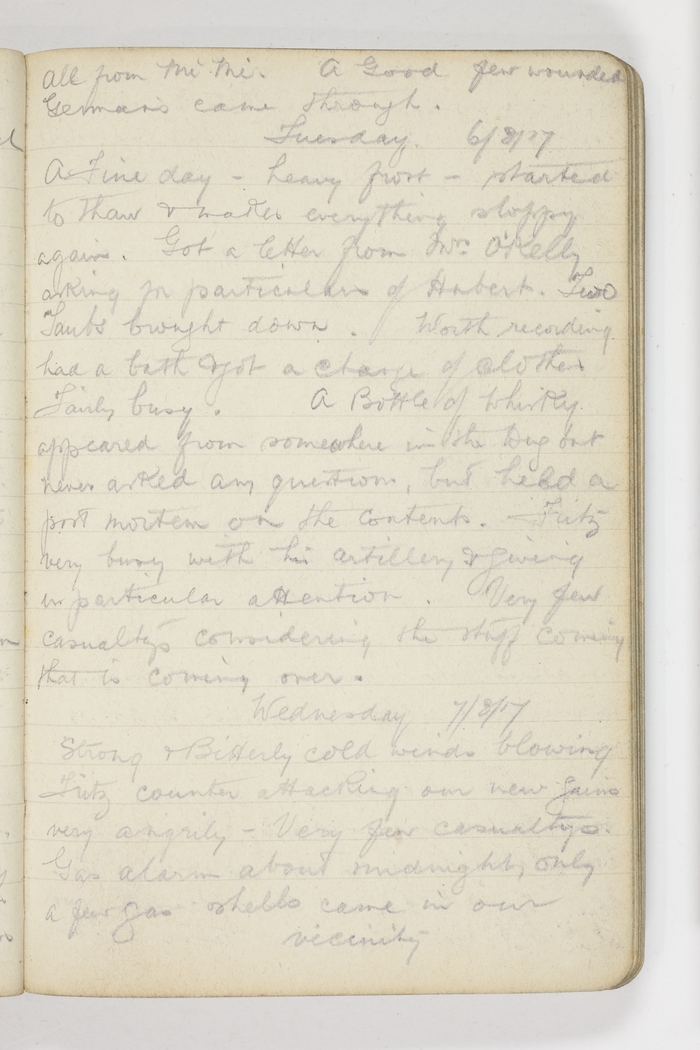 all from Mi Mi. A Good few wounded
Germans came through.
Tuesday. 6/3/17
A Fine day - heavy frost - started
to thaw & makes everything sloppy
again. Got a letter from Mrs O'Kelly
asking for particulars of Hubert. Two
Taubs brought down. Worth recording
had a bath & got a change of clothes
Fairly busy. A Bottle of Whisky
appeared from somewhere in the Dug out
never asked any questions, but held a
post mortem on the contents. Fritz
very busy with his artillery & giving
us particular attention. Very few
casualtys considering the stuff coming
that is coming over.
Wednesday 7/3/17
Strong & Bitterly cold winds blowing
Fritz counter attacking our new gains
very angrily - Very few casualtys.
Gas alarm about midnight, only
a few gas shells came in our
vicinity